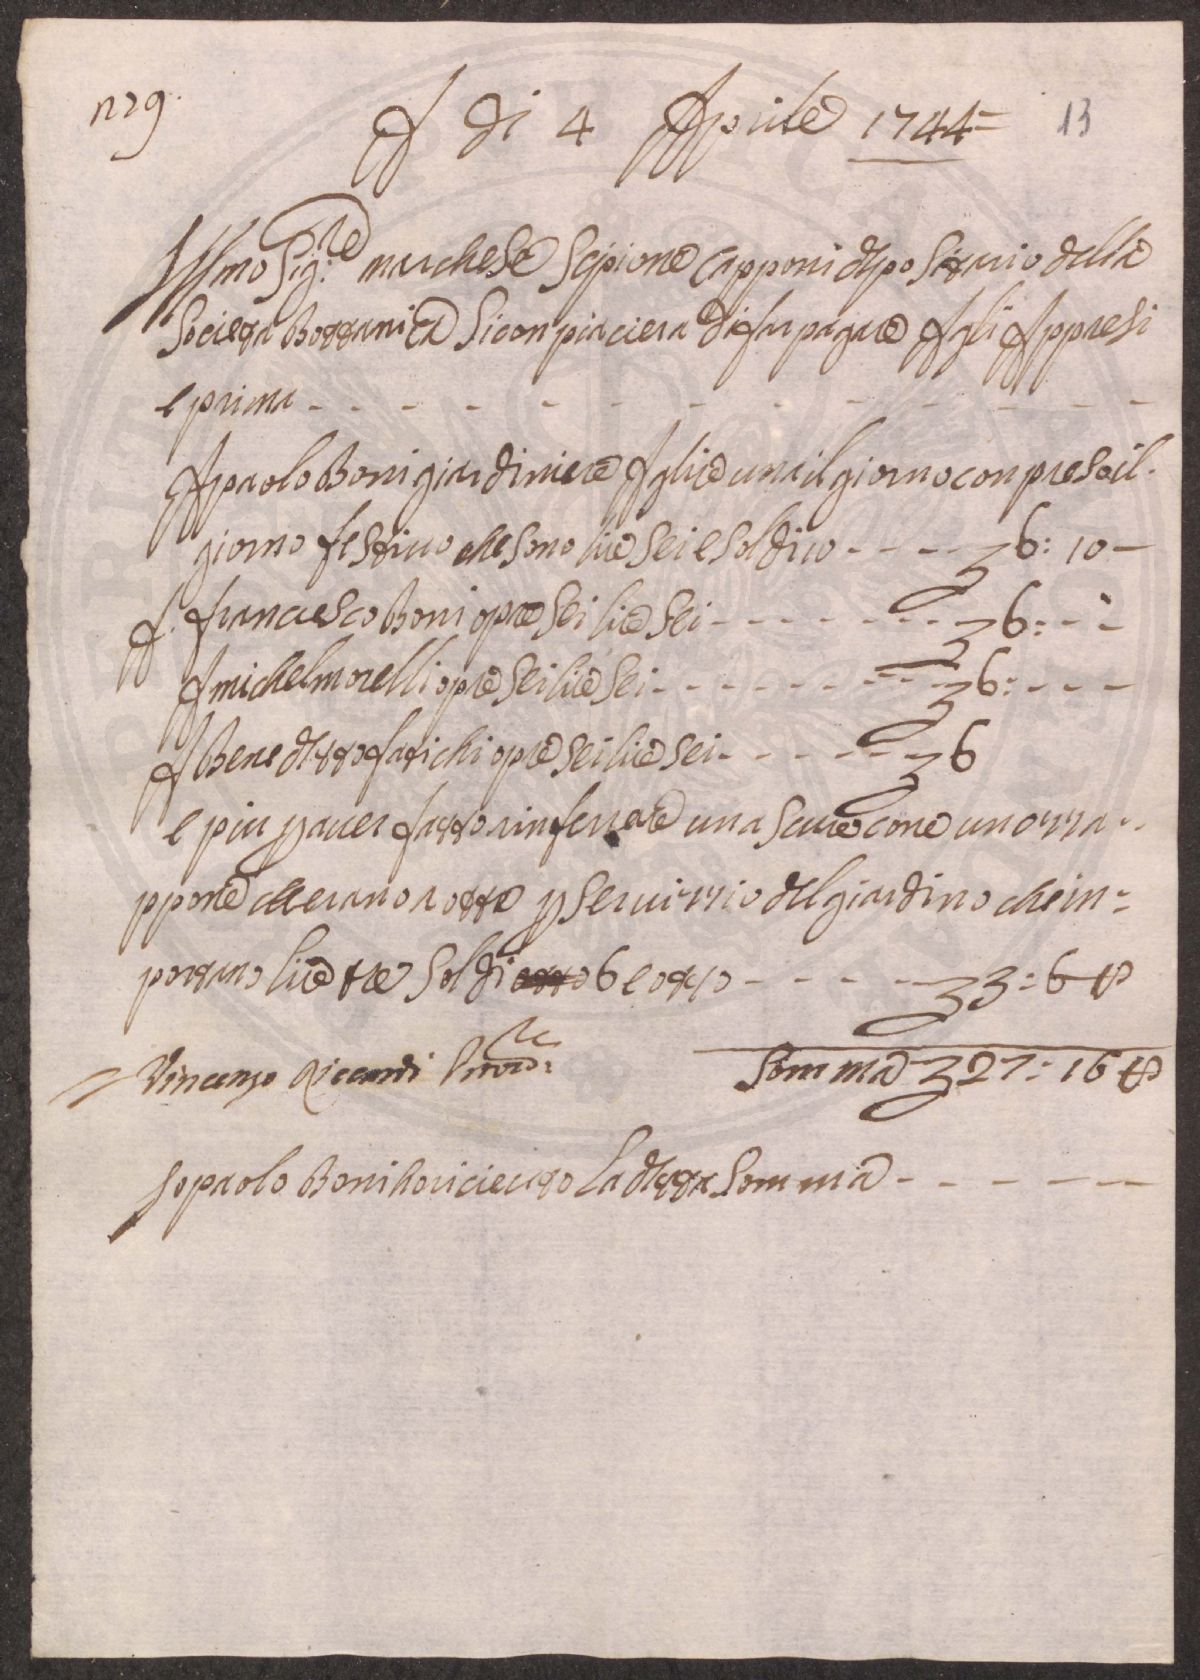 n 29.
A di 4 Aprile 1744=
13
Ill.mo Sig.re marchese Scipione Capponi depositario della
Societta Bottanica Si conpiaciera di far pagare A gli Appresi
e prima
A paolo Boni giardiniere A lire una il giorno conpreso il
giorno festiuo che sono lire sei e soldi 10 - - - - £ 6: 10 -
A francesco Boni opre sei lire sei - - - - - - - - £ 6: - -
A michel morelli opre sei lire sei - - - - - - - - £ 6: - - -
A Benedetto fatichi opre sei lire sei - - - - - - £ 6
e piu p auer fatto rinferrare una scure cone una zza
ppone che erano rotte p seruizzio del giardino che in=
portano lire tre soldi otto 6 e otto - - - - £ 3: 6 8
Vincenzo Riccardi Prov.re
Somma £ 27: 16 8
Io paolo Boni ho riceuto La detta Somma - - - - - -